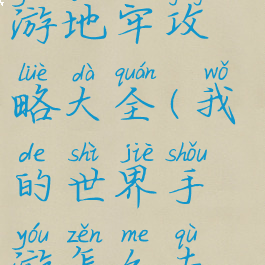 游地牢攻
lüè dà quán wǒ
略大全(我
de shì jiè shǒu
的世界手
yóu zěn me qù
游怎么去